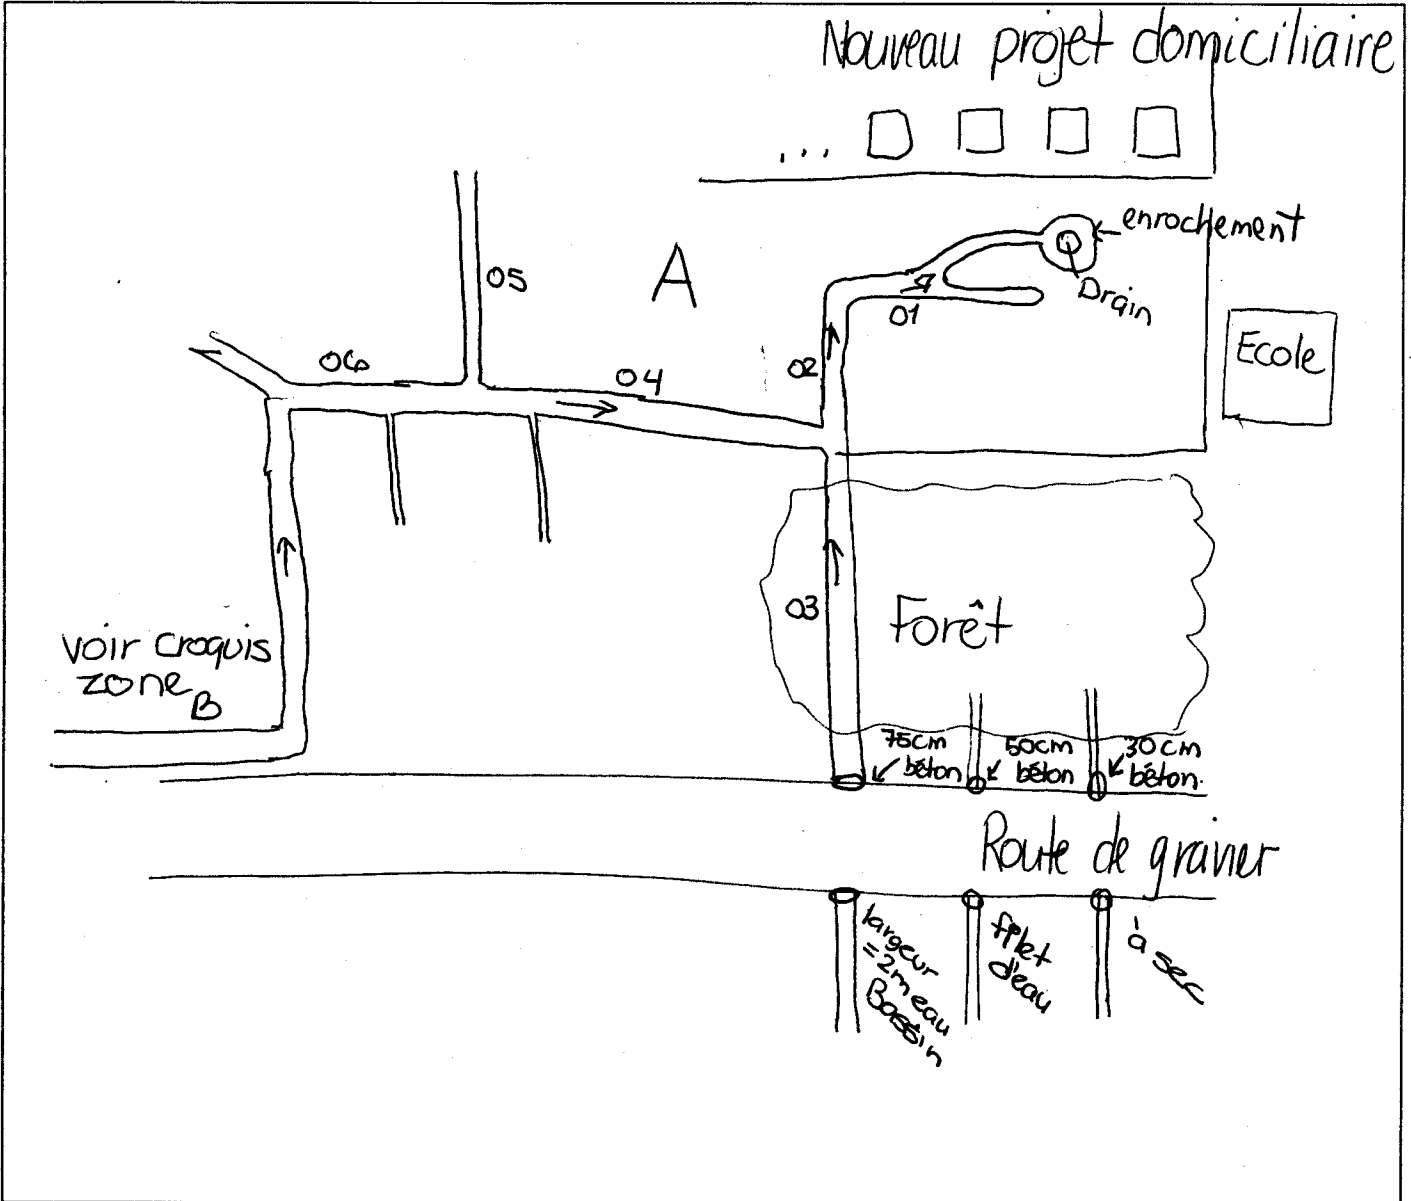 Nouveau projet domiciliaire
...
enrochement
Drain
05
A
01
Ecole
06
04
02
03
Forêt
voir croquis
zone B
75cm
béton
50cm
béton
30cm
béton.
Route de gravier
largeur
=2m eau
Bassin
filet
d'eau
à sec